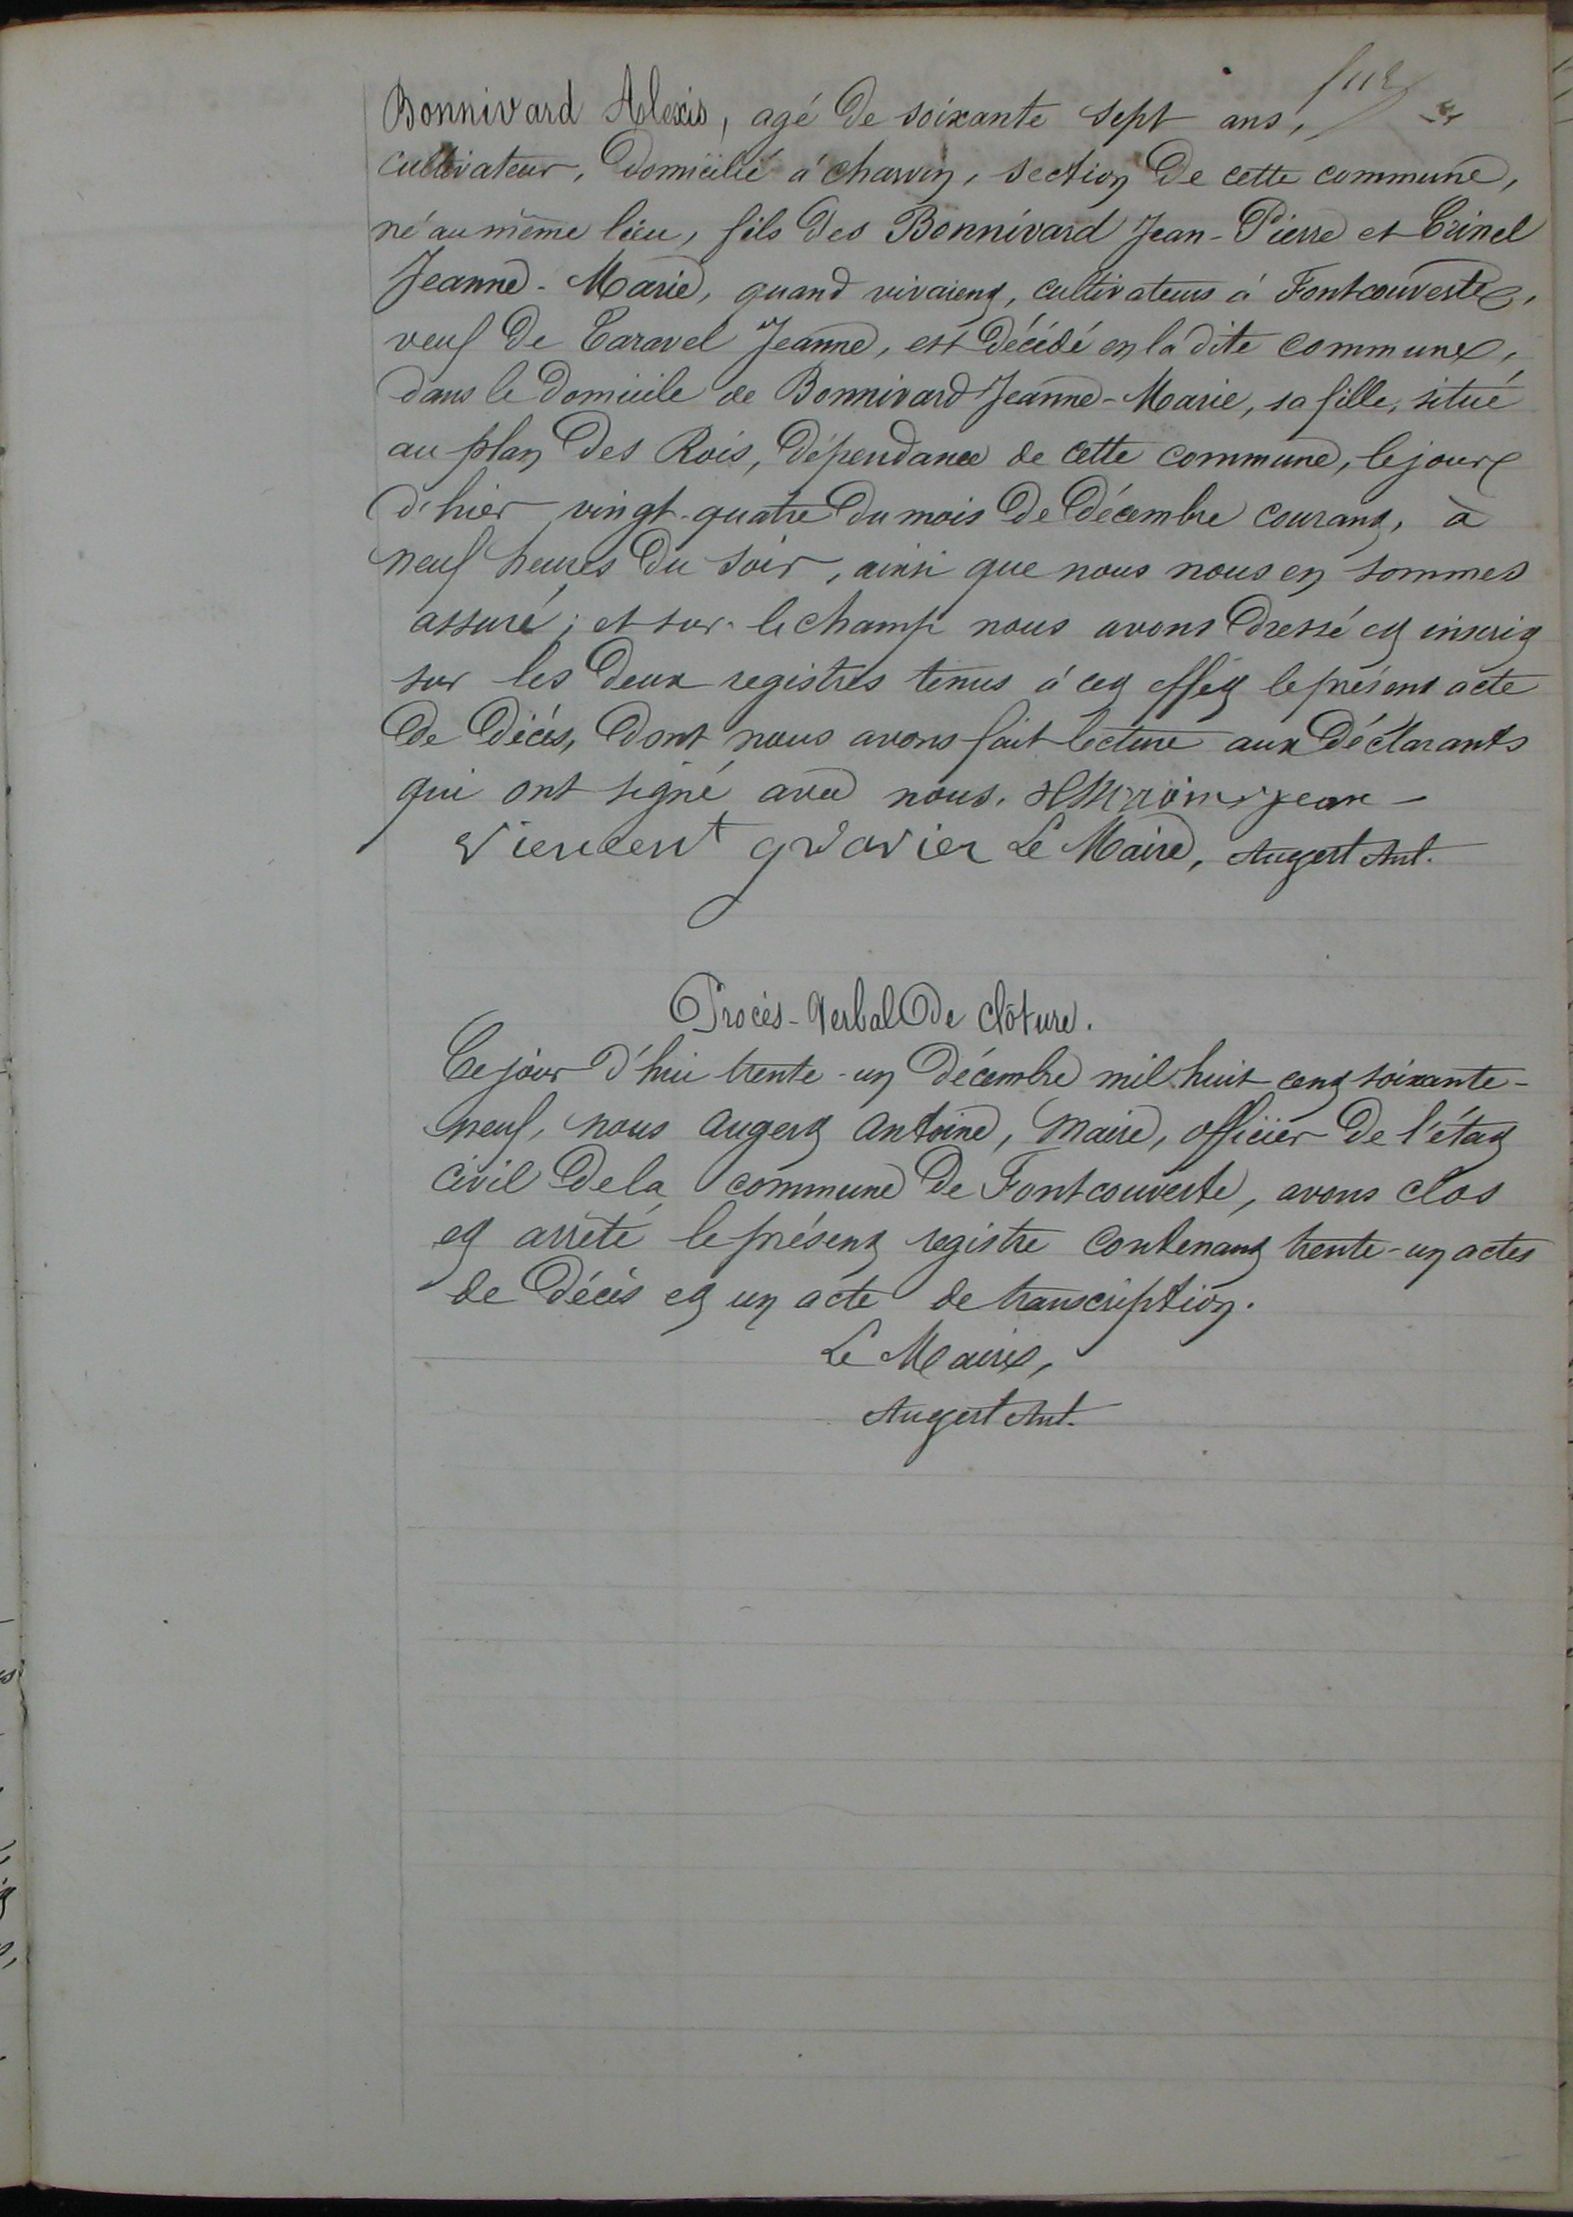 Bonnivard Alexis, agé de soixante sept ans,
cultivateur, domicilié à charvin, section de cette commune,
né au même lieu, fils des Bonnivard Jean-Pierre et Crinel
Jeanne-Marie, quand vivaient, cultivateurs à Fontcouverte,
veuf de Taravel Jeanne, est décédé en la dite commune,
dans le domicile de Bonnivard Jeanne-Marie, sa fille, situé
au plan des Rois, dépendance de cette commune, le jour
d'hier vingt-quatre du mois de décembre courant, à
neuf heures du soir, ainsi que nous nous en sommes
assuré; et sur-le champ nous avons dressé et inscrit
sur les deux registres tenus à cet effet le présent acte
de décès, dont nous avons fait lecture aux déclarants
qui ont signé avec nous. jean
Viencent gravier Le Maire, Augert Ant.
Procès-Verbal de clôture.
Ce jour d'hui trente-un décembre mil huit cent soixante-
neuf, nous augert antoine, maire, officier de l'état
civil de la commune de Fontcouverte, avons clos
et arrêté le présent registre contenant trente-un actes
de décès et un acte de transcription.
Le Maire,
Augert Ant.